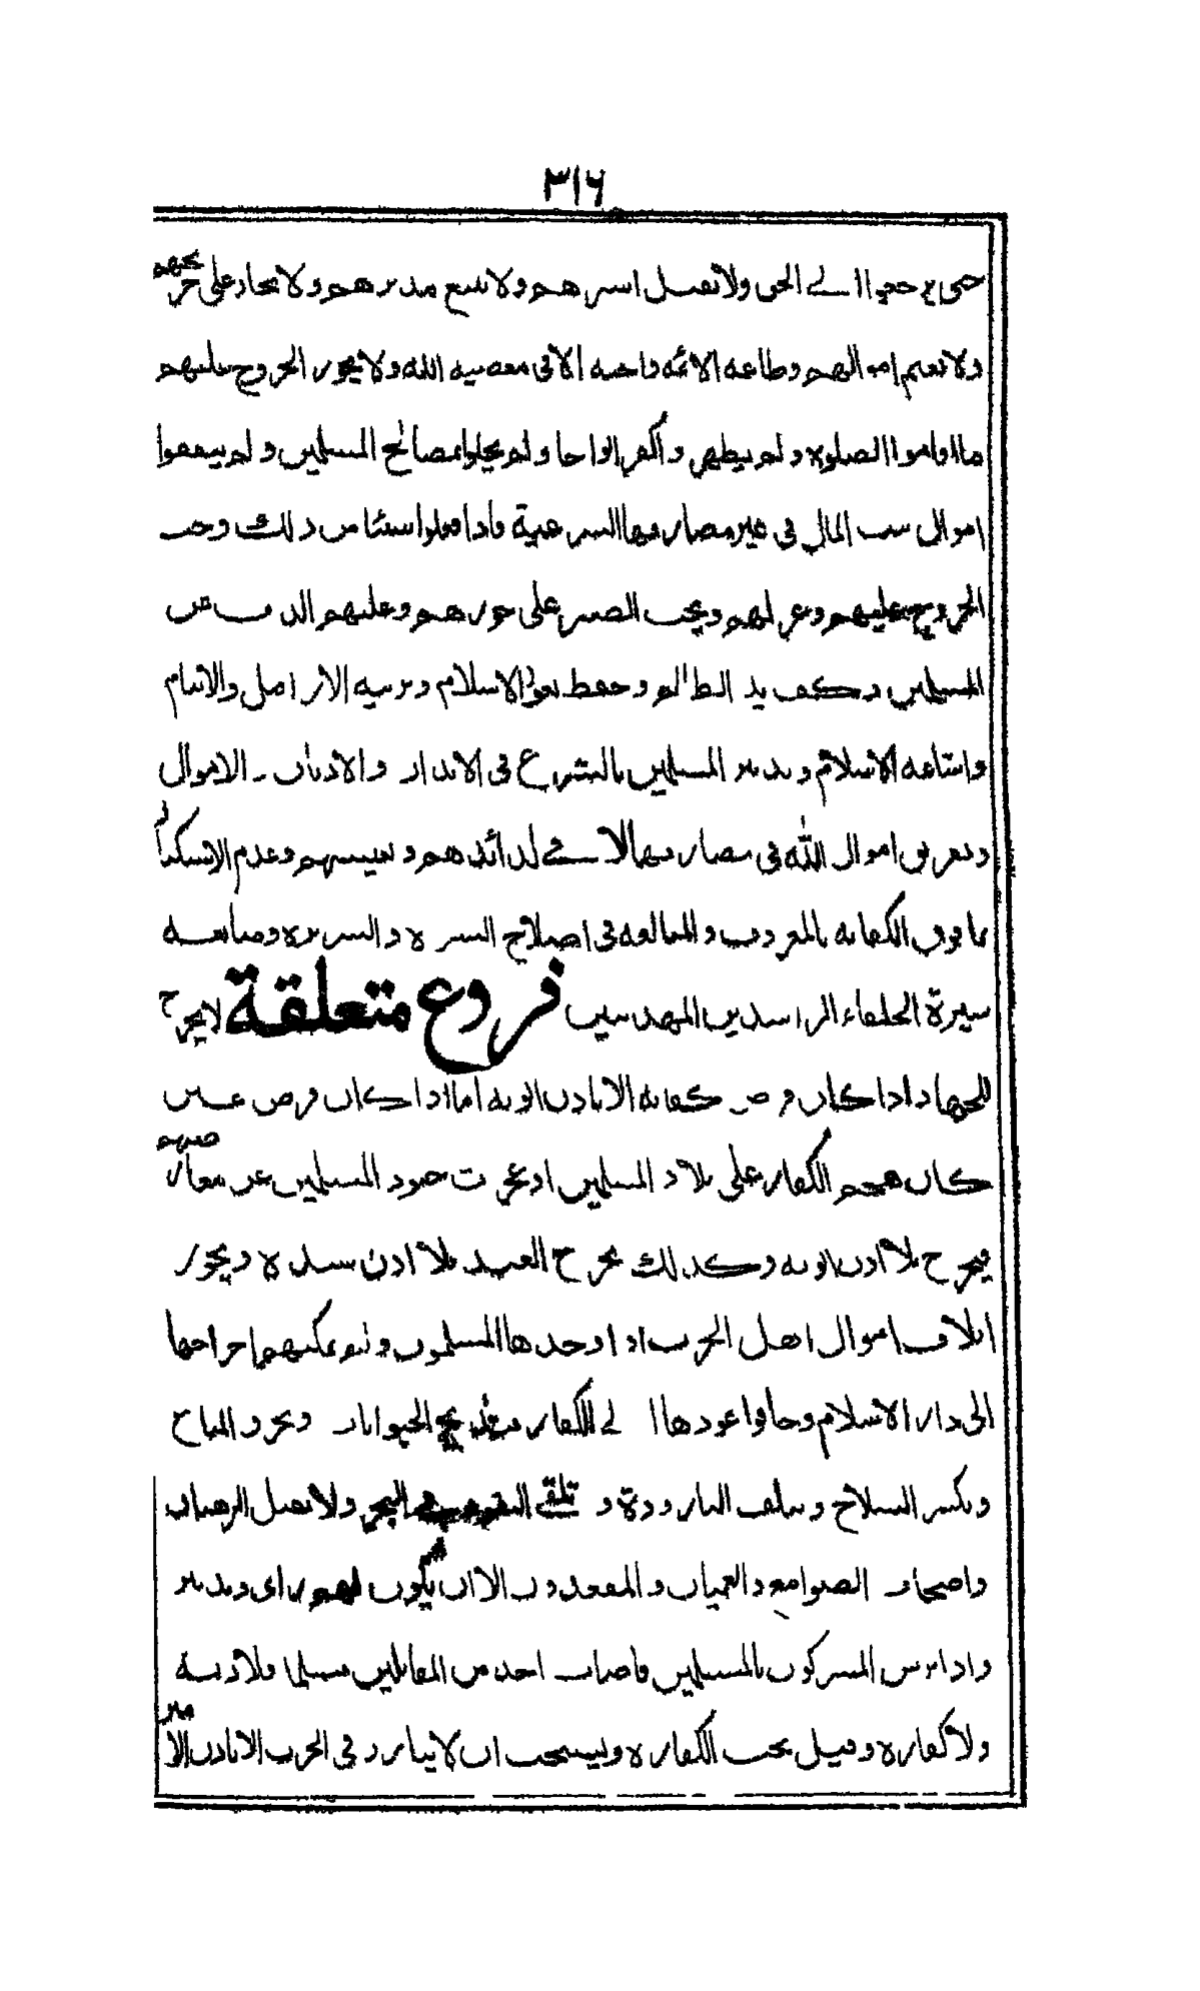 ٣١٦
حتى يرجعوا الى الحق ولا يقتل اسيرهم ولا يتبع مدبرهم ولا يجاز على جريحهم
ولا تغنم اموالهم وطاعة الائمة واجبة الا فى معصية الله ولا يجوز الخروج عليهم
ما اقاموا الصلوة ولم يظهروا كفرا بواحا ولم يخلوا بمصالح المسلمين ولم يضعوا
اموال بيت المال فى غير مصارفها الشرعية فاذا فعلوا شيئا من ذلك وجب
الخروج عليهم وعزلهم ويجب الصبر على جورهم وعليهم الذب عن
المسلمين وكف يد الظالم وحفظ ثغور الاسلام وتربية الارامل والايتام
واشاعة الاسلام وتدبير المسلمين بالشرع فى الابدان والاديان والاموال
وتفريق اموال الله فى مصارفها لا فى لذائذهم وتعيشهم وعدم الاستكثار
بما فوق الكفاية بالمعروف والمبالغة فى اصلاح السيرة والسريرة ومتابعة
سيرة الخلفاء الراشدين المهديين فروع متعلقة لا يخرج
للجهاد اذا كان فرض كفاية الا باذن ابويه اما اذا كان فرض عين
كان هجم الكفار على بلاد المسلمين او عجزت جنود المسلمين عن مقابلتهم
فيخرج بلا اذن ابويه وكذلك يخرج العبد بلا اذن سيده ويجوز
اتلاف اموال اهل الحرب اذا وجدها المسلمون ولم يمكنهم اخراجها
الى دار الاسلام وخافوا عودها الى الكفار فتذبح الحيوانات وتحرق المتاع
وتكسر السلاح وتتلف البارودة و تلقى فى البحر ولا يقتل الرهبان
واصحاب الصوامع والعميان والمقعدون الا ان يكون لهم راى وتدبير
واذا تترس المشركون بالمسلمين فاصاب احد من المقاتلين مسلما فلا دية
ولا كفارة وقيل يجب الكفارة ويستحب ان لا يبارز فى الحرب الا باذن الامير